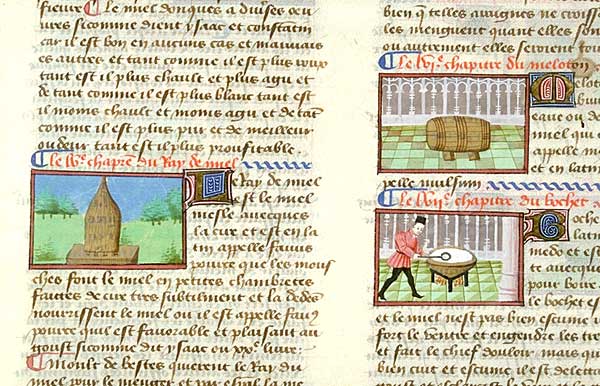 fieure Le miel donques a diuerses oeu
ures sicomme dient ysaac et constantin
car il est bon en aucuns cas et mauuais
es autres et tant comme il est plus roux
tant est il plus chault et plus agu et
de tant comme il est plus blanc tant est
il moins chault et moins agu et de tāt
comme il est plus pur et de meilleur
oudeur tant est il plus prouffitable.
chapre du Ray de miel
Le Ray de miel
est le miel
mesle auecques
la cire et est en la
tin appelle fauus
pource que les mous
ches font le miel en petites chambretes
faites de cire tres subtilment et la dedēs
nourissent le miel ou il est appelle fauꝰ
pource quil est fauorable et plaisant au
goust sicomme dit ysaac ou xxe liure.
Moult de bestes querent le Ray du
miel pour le menger et par
bien q telles auaignes ne croiss
les menguent quant elles son
ou autrement elles seroient tou
Le vie chapitre du meloton
M eloto
eaue ou de
miel que
appelle m
et en latin
pelle mulsum
Le viie chapitre du bochet
B oche
latin
medo et est
te auecque
pour boire
le bochet es
et le miel nest pas bien escume il
fort le ventre et engendre les tre
et fait le chief douloir mais qua
bien cuit et escume il est delecta